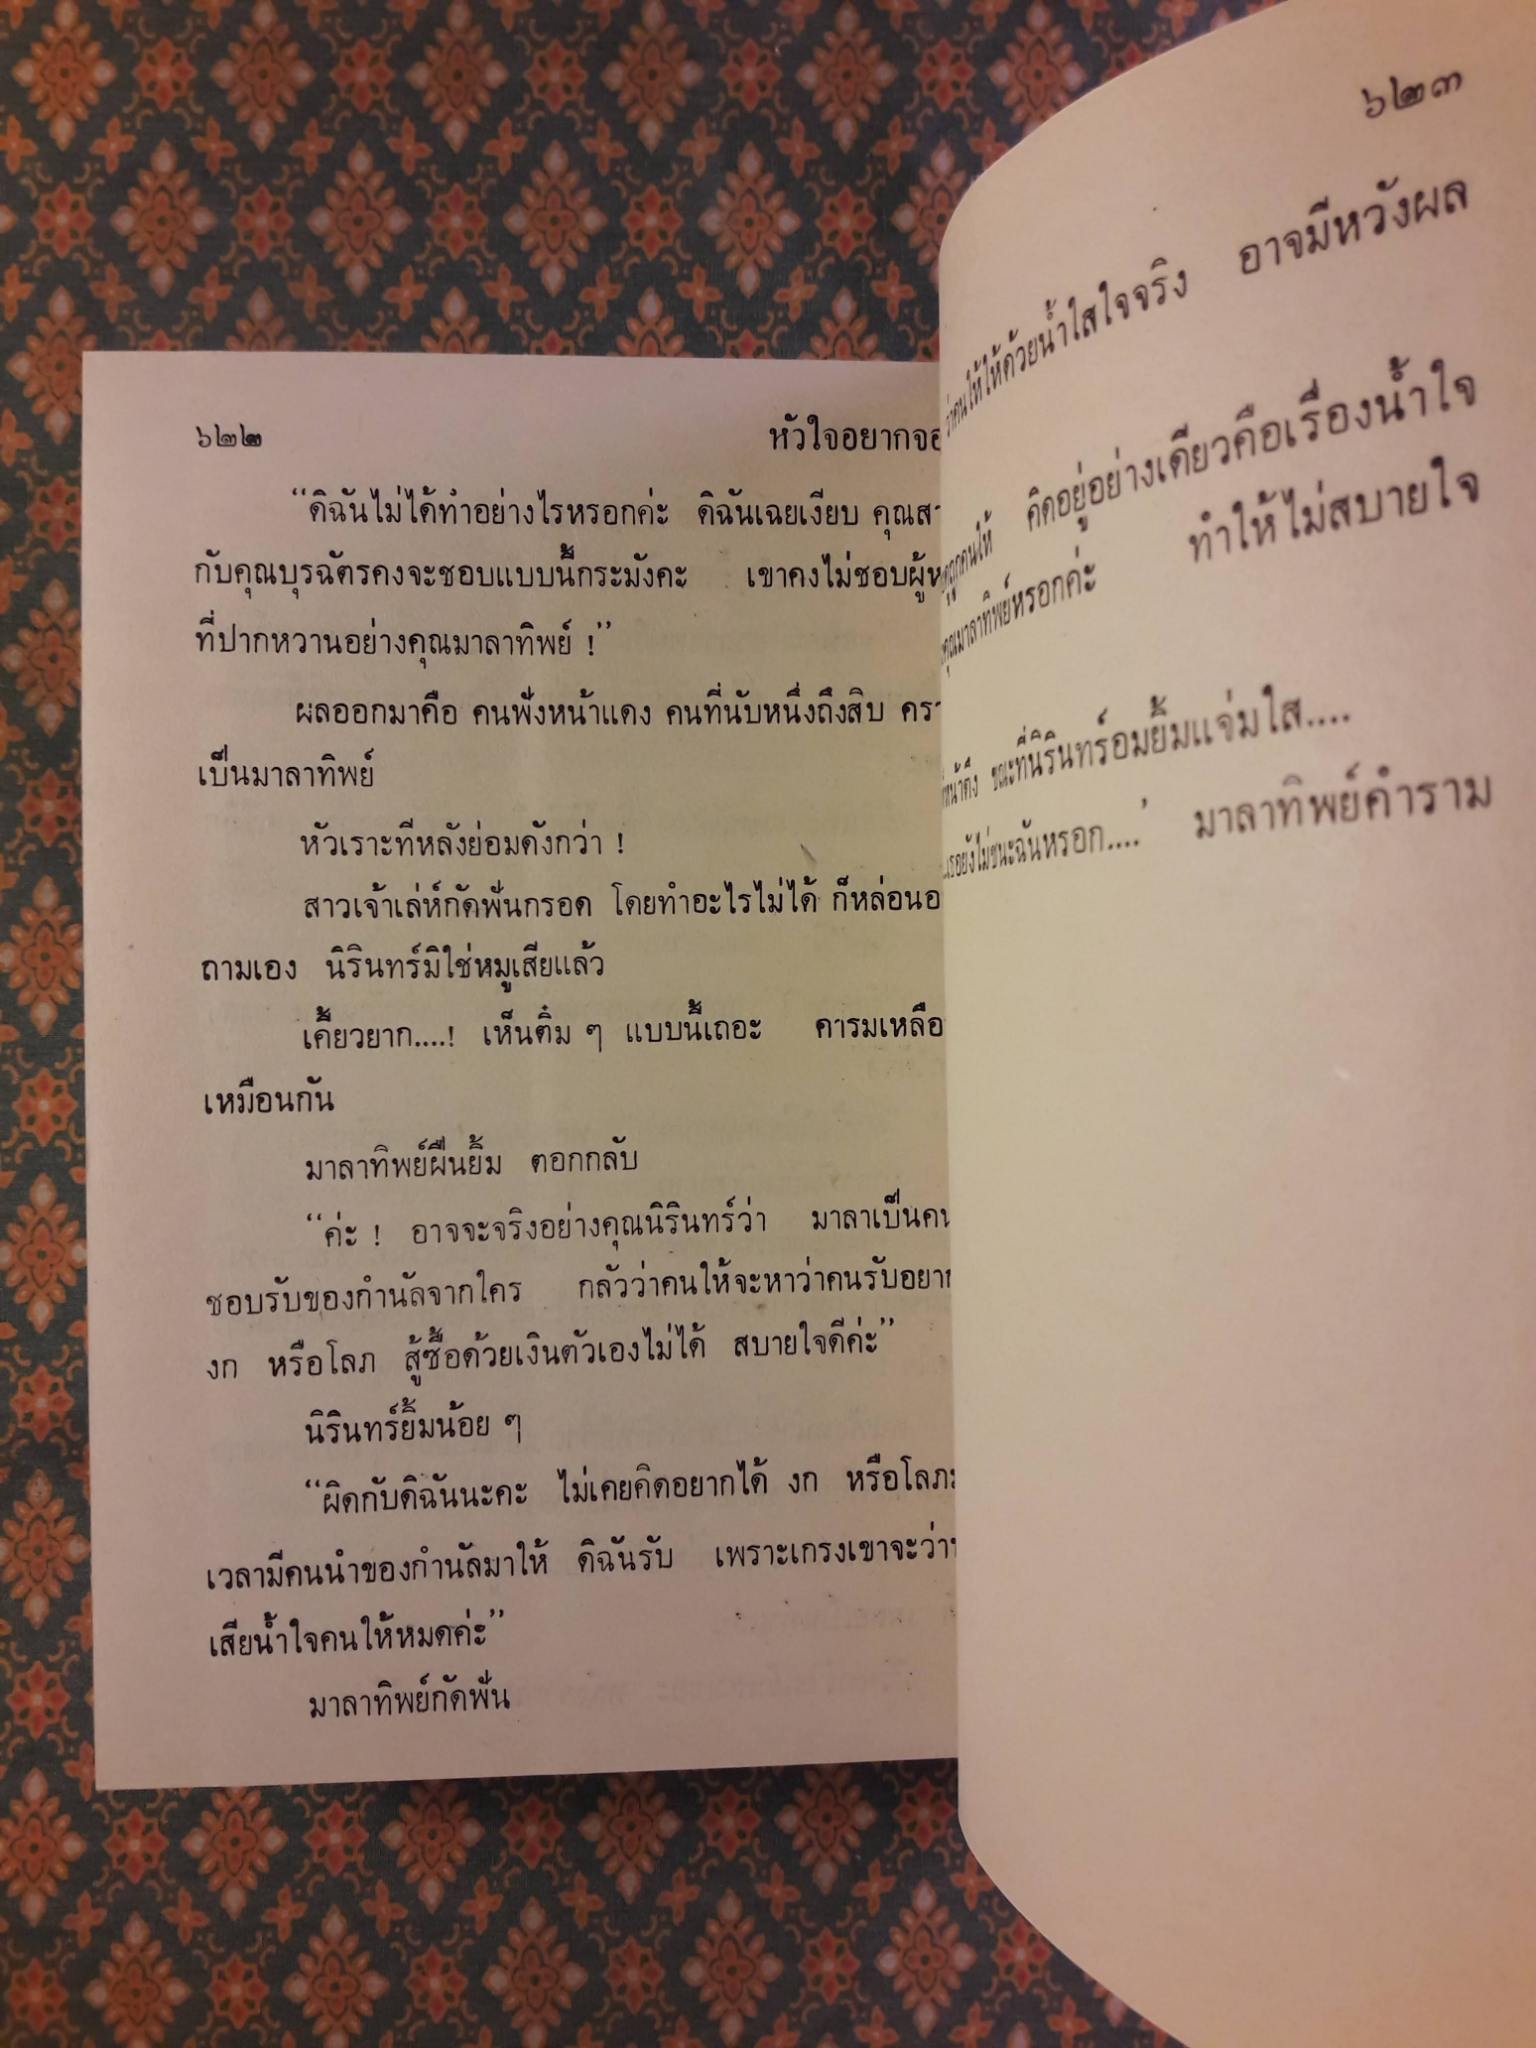 ๖๒๒
“ดิฉันไม่ได้ทำอย่างไรหรอกค่ะ ดิฉันเฉยเงียบ
กับคุณบุรฉัตรคงจะชอบแบบนี้กระมังคะ เขาคงไม่ชอบ
ที่ปากหวานอย่างคุณมาลาทิพย์ !”
ผลออกมาคือ คนฟังหน้าแดง คนที่นับหนึ่งถึงสิบ
เป็นมาลาทิพย์
หัวเราะทีหลังย่อมดังกว่า !
สาวเจ้าเล่ห์กัดฟันกรอด โดยทำอะไรไม่ได้ ก็หล่อน
ถามเอง นิรินทร์มิใช่หมูเสียแล้ว
เคี้ยวยาก....! เห็นติ๋ม ๆ แบบนี้เถอะ คารมเหลือ
เหมือนกัน
มาลาทิพย์ฝืนยิ้ม ตอกกลับ
“ค่ะ ! อาจจะจริงอย่างคุณนิรินทร์ว่า มาลาเป็นคน
ชอบรับของกำนัลจากใคร กลัวว่าคนให้จะหาว่าคนรับอยาก
งก หรือโลภ สู้ซื้อด้วยเงินตัวเองไม่ได้ สบายใจดีค่ะ”
นิรินทร์ยิ้มน้อย ๆ
“ผิดกับดิฉันนะคะ ไม่เคยคิดอยากได้ งก หรือโลภ
เวลามีคนนำของกำนัลมาให้ ดิฉันรับ เพราะเกรงเขาจะว่า
เสียน้ำใจคนให้หมดค่ะ”
มาลาทิพย์กัดฟัน
๖๒๓
ว่าคนให้ให้ด้วยน้ำใสใจจริง อาจมีหวังผล
ถูกคนให้ คิดอยู่อย่างเดียวคือเรื่องน้ำใจ
คุณมาลาทิพย์หรอกค่ะ ทำให้ไม่สบายใจ
หน้าตึง ขณะที่นิรินทร์อมยิ้มแจ่มใส....
เธอยังไม่ชนะฉันหรอก....’ มาลาทิพย์คำราม